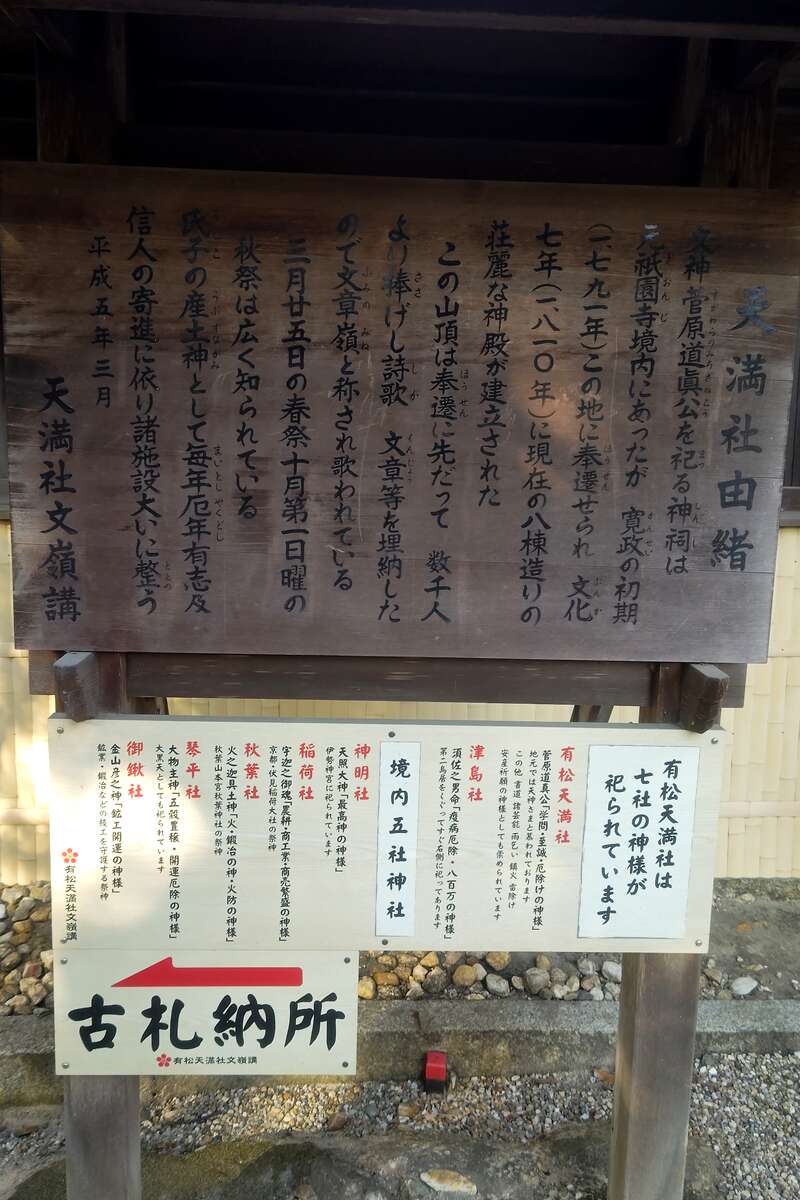 天満社由緒
文神菅原道眞公を祀る神祠は
元祇園寺境内にあったが 寛政の初期
(一、七九一年)この地に奉遷せられ 文化
七年(一、八一〇年)に現在の八棟造りの
荘麗な神殿が建立された
この山頂は奉遷に先だって 数千人
より捧げし詩歌 文章等を埋納した
ので文章嶺と称され歌われている
三月廿五日の春祭十月第一日曜の
秋祭は広く知られている
氏子の産土神として毎年厄年有志及
信人の寄進に依り諸施設大いに整う
平成五年三月
天満社文嶺講
有松天満社は
七社の神様が
祀られています
有松天満社
菅原道真公「学問・至誠・厄除けの神様」
地元では天神さまと慕われております
この他 書道 諸芸能 雨乞い 鎮火 雷除け
安産祈願の神様としても崇められています
津島社
須佐之男命「疫病厄除・八百万の神様」
第二鳥居をくぐってすぐ右側に祀ってあります
境内五社神社
神明社
天照大神「最高神の神様」
伊勢神宮に祀られています
稲荷社
宇迦之御魂「農耕・商工業・商売繁盛の神様」
京都・伏見稲荷大社の祭神
秋葉社
火之迦具土神「火・鍛冶の神・火防の神様」
秋葉山本宮秋葉神社の祭神
琴平社
大物主神「五穀豊穣・開運厄除の神様」
大黒天としても祀られています
御鍬社
金山彦之神「鉱工開運の神様」
鉱業・鍛冶などの技工を守護する祭神
有松天満社文嶺講
古札納所
有松天満社文嶺講